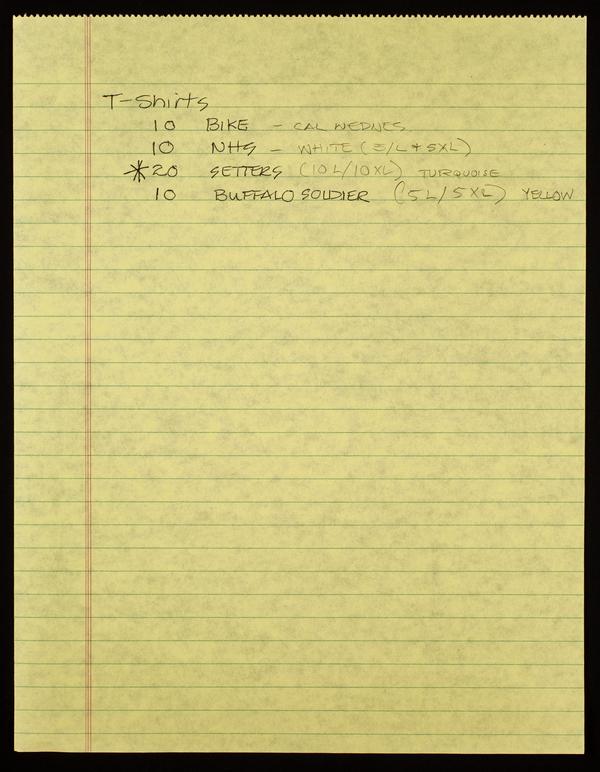 T-Shirts
10 BIKE - CAL WEDNES
10 NHS - WHITE (5/L + 5XL)
*20 SETTERS (10L/10XL) TURQUOISE
10 BUFFALO SOLDIER (5L/5XL) YELLOW